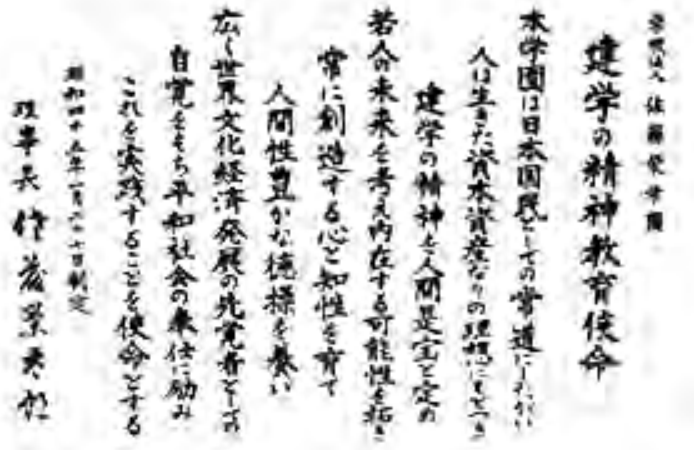 学校法人 佐藤栄学園
建学の精神教育使命
本学園は日本国民としての常道にしたがい
人は生きた資本資産なりの理想にもとづき
建学の精神を人間是宝と定め
若人の未来を考え内在する可能性を拓き
常に創造する心と知性を育て
人間性豊かな徳操を養い
広く世界文化経済発展の先覚者としての
自覚をもち平和社会の奉仕に励み
これを実践することを使命とする
昭和四十五年 月 十 日制定
理事長 佐藤栄太郎